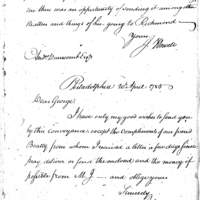 there was an opportunity of sending it among the
Bottles and things of his going to Richmond
Yours
J. Howell
And.w Dunscomb Esq.r
Philadelphia 20 April 1785
Dear George
I have only my good wishes to send you
by this Conveyance, except the Compliments of our friend
Beatty from whom I received a letter a few days since
pray deliver or send the enclosed and the money if
possible from M. J — and oblige yours
Sincerely